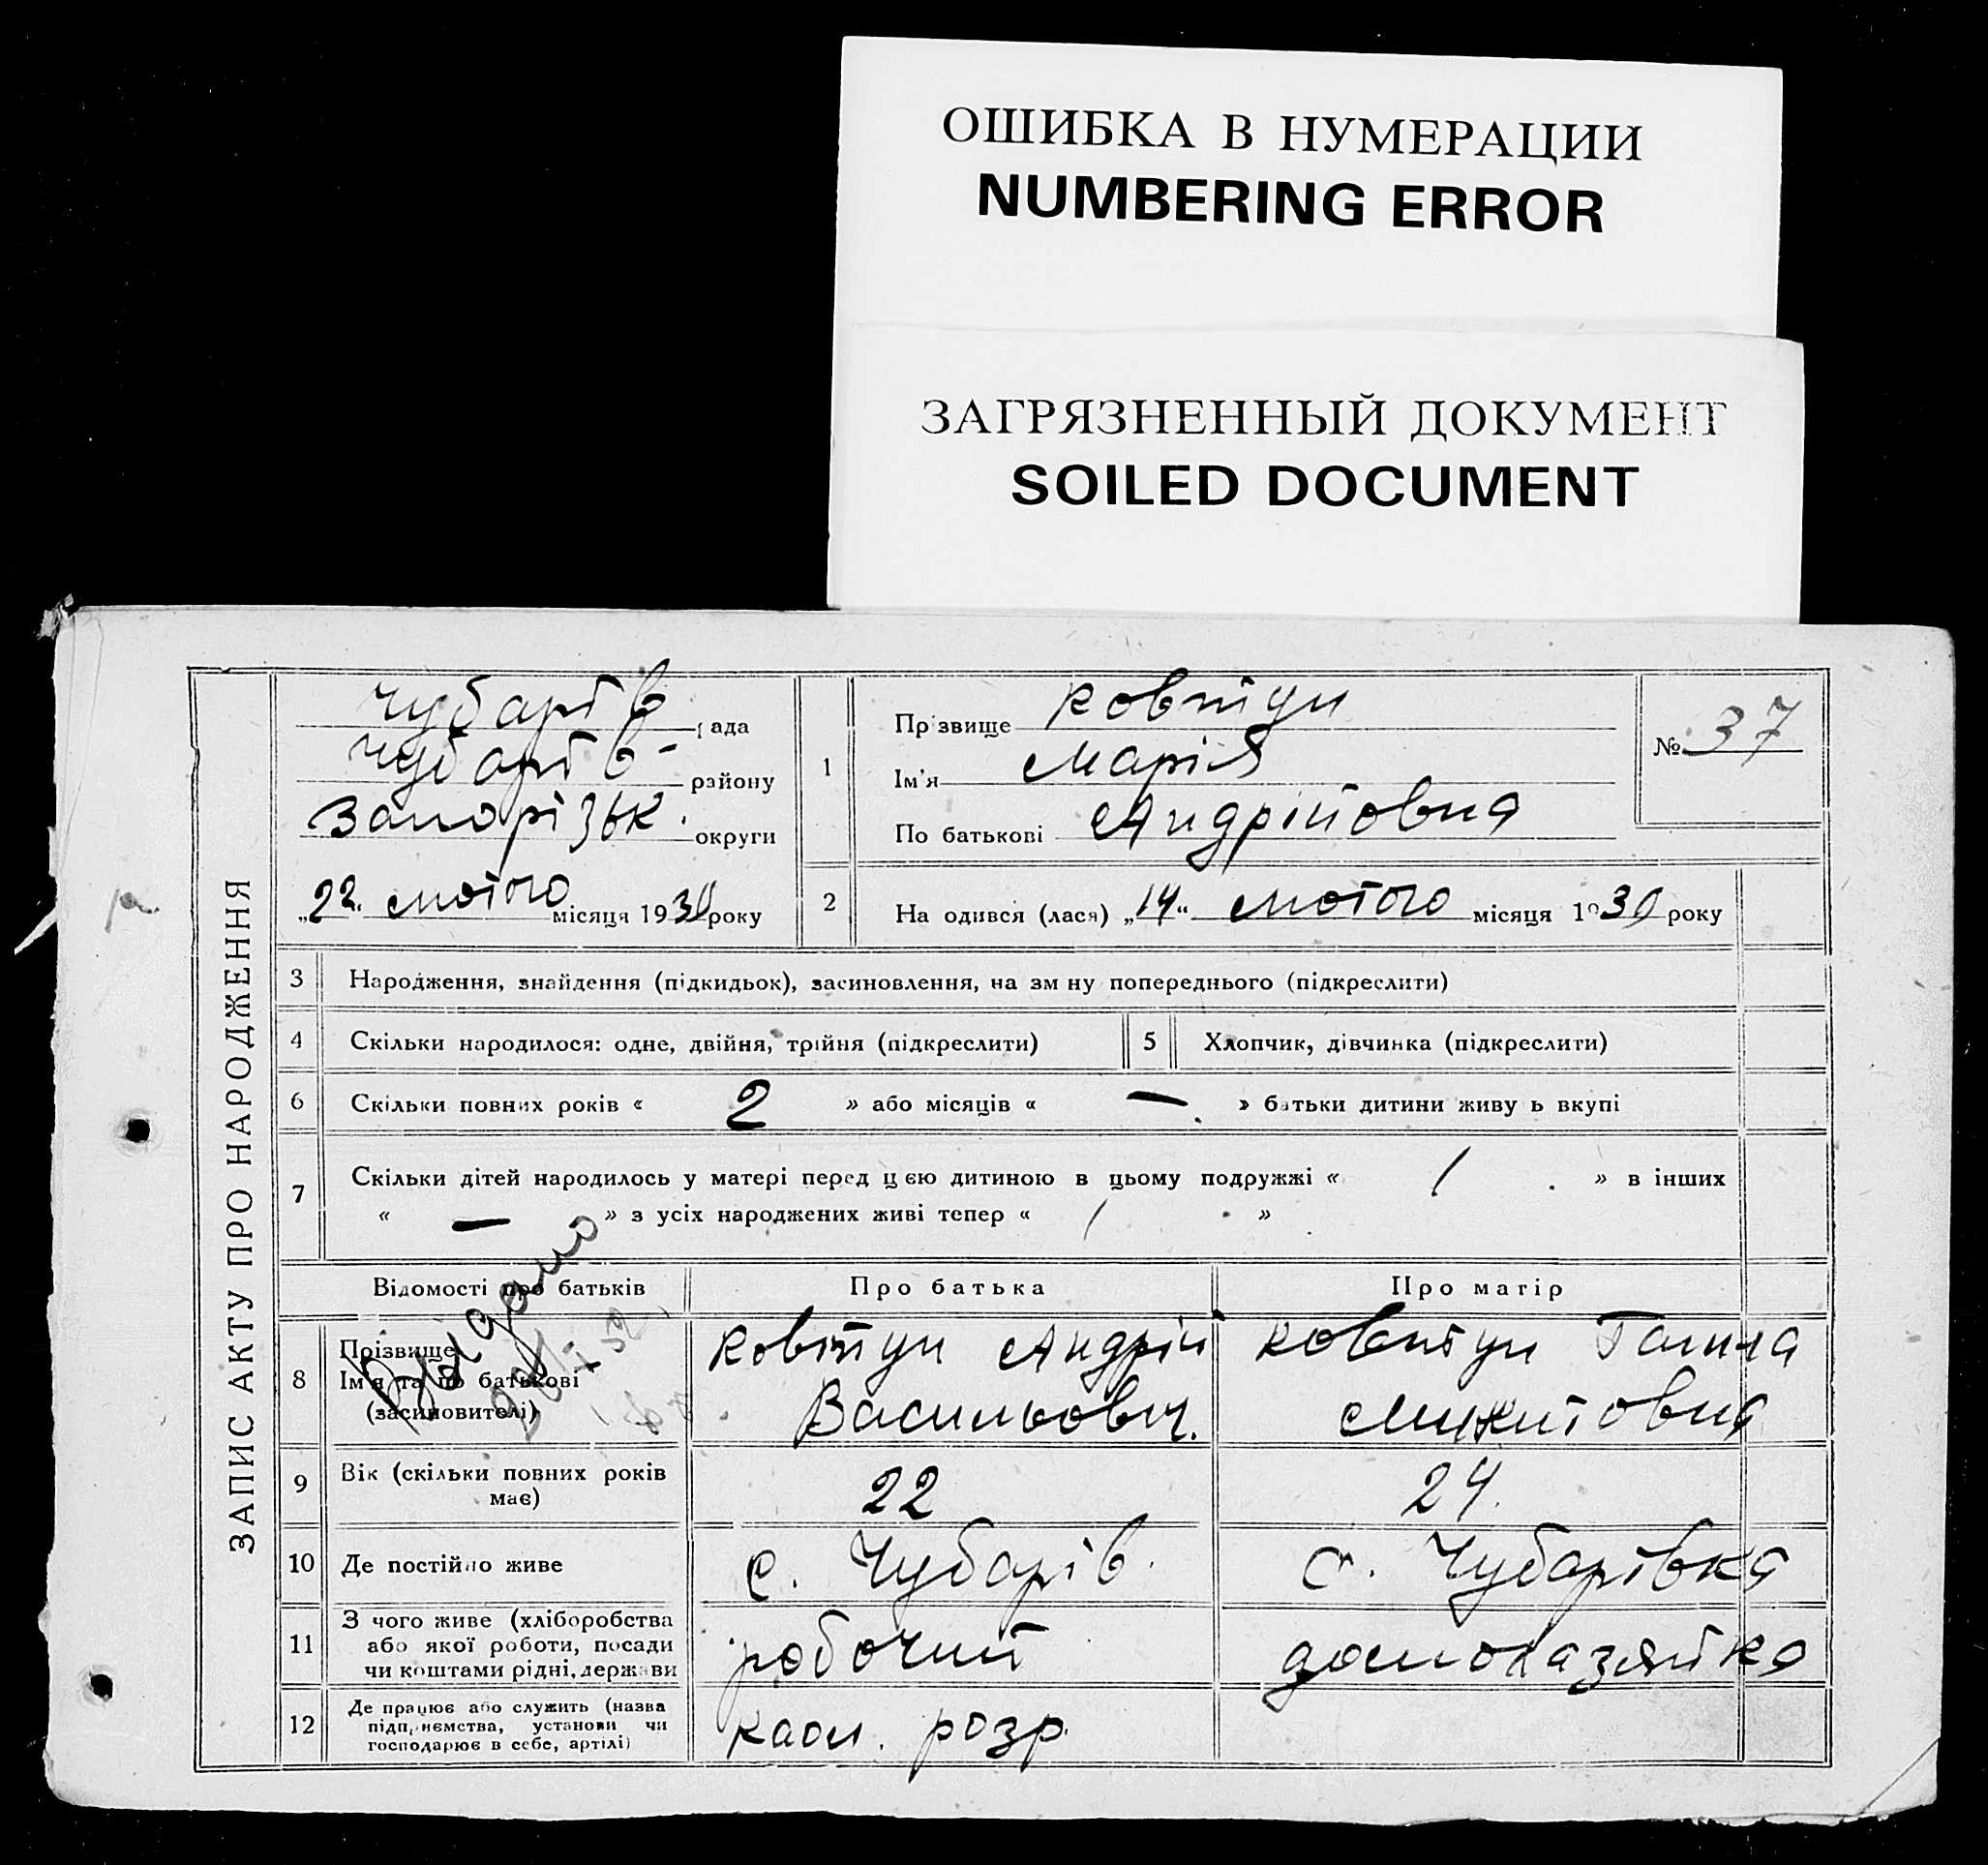 ОШИБКА В НУМЕРАЦИИ
NUMBERING ERROR
ЗАГРЯЗНЕННЫЙ ДОКУМЕНТ
SOILED DOCUMENT
ЗАПИС АКТУ ПРО НАРОДЖЕННЯ
Чубарів рада
Чубарів- району
Запорізьк. округи
„22“ лютого місяця 1930 року
1
Прізвище Ковтун
Ім'я Марія
По батькові Андріівна
№ 37
2 На одився (лася) „14“ лютого місяця 1930 року
3 Народження, знайдення (підкидьок), засиновлення, на зм ну попереднього (підкреслити)
4 Скільки народилося: одне, двійня, трійня (підкреслити)
5 Хлопчик, дівчинка (підкреслити)
6 Скільки повних років « 2 » або місяців « — » батьки дитини живу ь вкупі
7 Скільки дітей народилось у матері перед цією дитиною в цьому подружжі « 1 » в інших
« — » з усіх народжених живі тепер « 1 »
Відомості про батьків Про батька Про матір
Видано
8 Прізвище Ковтун Андрій Ковтун Галина
Ім'я та по батькові
(засиновителі) Васильович. Микитовна
9 Вік (скільки повних років 22 24.
має)
10 Де постійно живе с. Чубарів. с. Чубарівка
11 З чого живе (хліборобства
або якої роботи, посади робочий домохазяйка
чи коштами рідні, держави
12 Де працює або служить (назва
підприємства, установи чи розр.
господарює в себе, артілі)